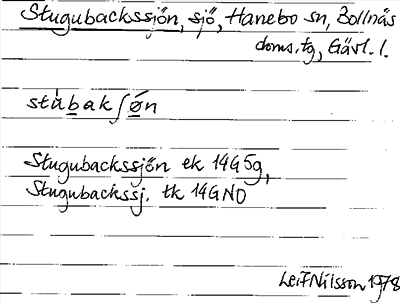 Stugubackssjön, sjö, Hanebo sn, Bollnäs
doms. tg, Gävl. l.
stùbakʃǿn
Stugubackssjön ek 14G5g,
Stugubackssj. tk 14GNO
Leif Nilsson 1978